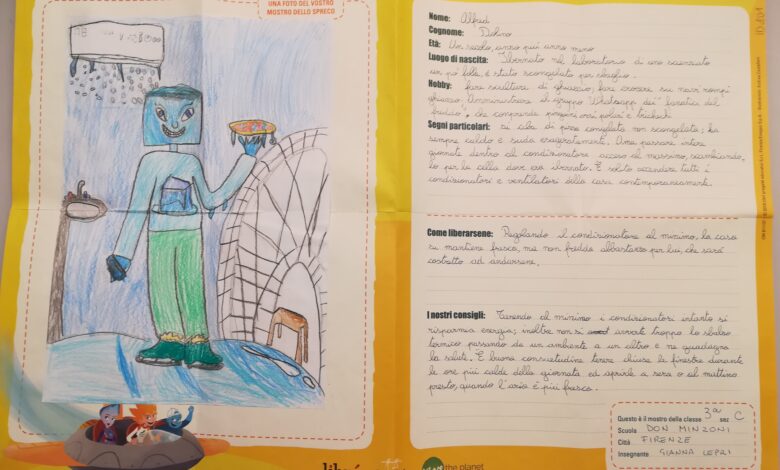 UNA FOTO DEL VOSTRO
MOSTRO DELLO SPRECO
Nome: Alfred
Cognome: Delino
Età: Un secolo, anno più anno meno
Luogo di nascita: Ibernato nel laboratorio di uno scienziato
un po' folle, è stato scongelato per sbaglio.
Hobby: fare sculture di ghiaccio, fare crociere su navi rompi
ghiaccio. Amministrare il gruppo Whatsapp dei "fanatici del
freddo", che comprende pinguini orsi polari e trichechi
Segni particolari: si ciba di pizze congelate non scongelate; ha
sempre caldo e suda esageratamente. Ama passare intere
giornate dentro al condizionatore acceso al massimo, scambiando
lo per la cella dove era ibernato. È solito accendere tutti i
condizionatori e ventilatori della casa contemporaneamente.
Come liberarsene: Regolando il condizionatore al minimo, la casa
si mantiene fresca, ma non fredda abbastanza per lui, che sarà
costretto ad andarsene.
I nostri consigli: Tenendo al minimo i condizionatori intanto si
risparmia energia; inoltre non si avverte troppo lo sbalzo
termico passando da un ambiente a un altro e ne guadagna
la salute. È buona consuetudine tenere chiuse le finestre durante
le ore più calde della giornata ed aprirle a sera o al mattino
presto, quando l'aria è più fresca.
Questo è il mostro della classe 3ª sez C
Scuola DON MINZONI
Città FIRENZE
Insegnante GIANNA LEPRI
the planet